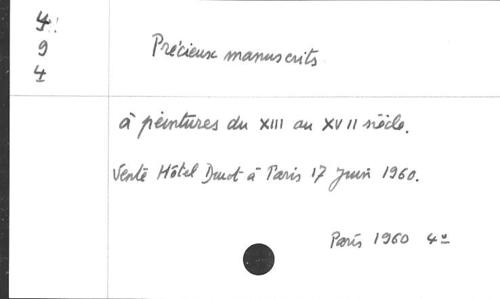 4
9
4
Précieux manuscrits
à peintures du XIII au XVII siècle.
Vente Hôtel Duot à Paris 17 Juin 1960.
Paris 1960 4º